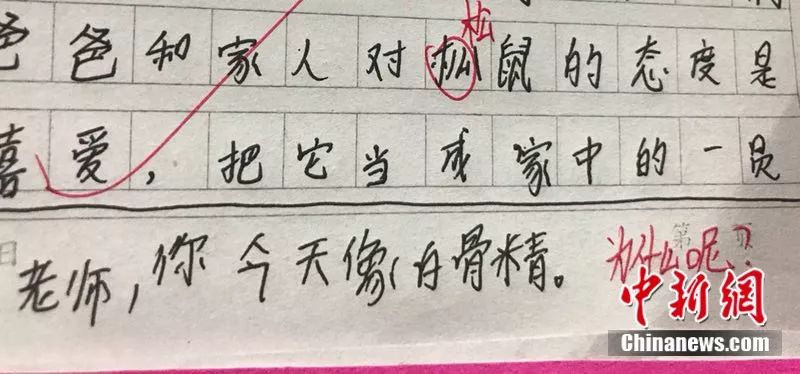 爸爸和家人对松鼠的态度是
松
喜爱，把它当成家中的一员
老师，你今天像白骨精。 为什么呢？
第 页
日
中新網
Chinanews.com